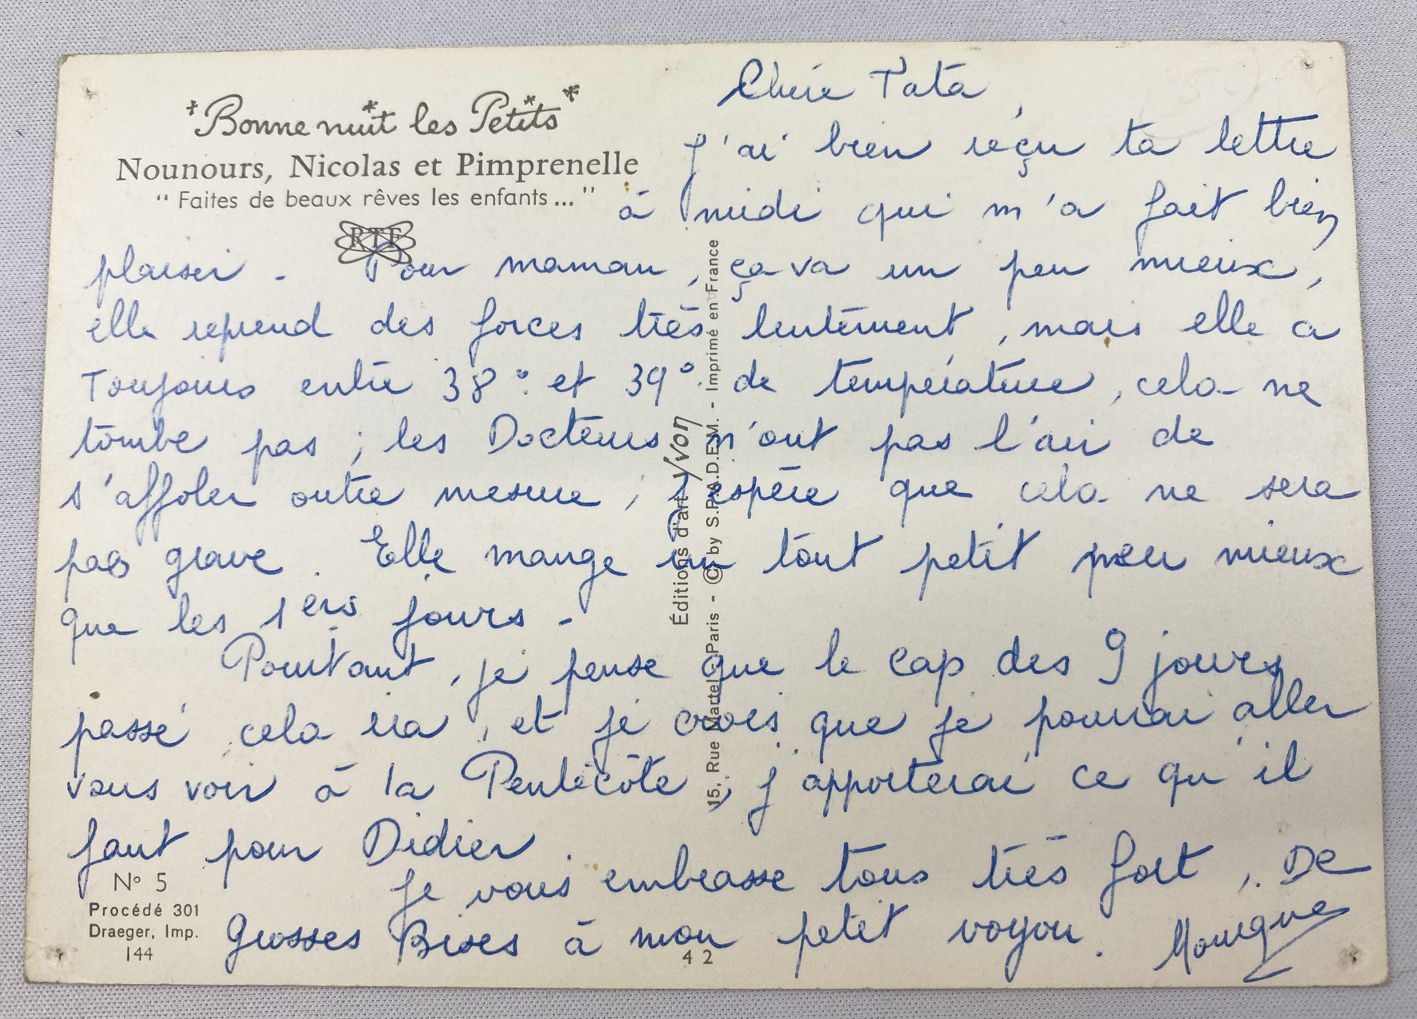 Bonne nuit les Petits
Nounours, Nicolas et Pimprenelle
"Faites de beaux rêves les enfants..."
RTF
Chère Tata,
J'ai bien reçu ta lettre
à midi qui m'a fait bien
plaisir - Pour maman, ça va un peu mieux,
elle reprend des forces très lentement, mais elle a
Toujours entre 38° et 39° de température, cela ne
tombe pas ; les Docteurs n'ont pas l'air de
s'affoler outre mesure ; j'espère que cela ne sera
pas grave. Elle mange un tout petit peu mieux
que les 1ers jours -
Pourtant, je pense que le cap des 9 jours
passé cela ira, et je crois que je pourrai aller
vous voir à la Pentecôte, j'apporterai ce qu'il
faut pour Didier.
Je vous embrasse tous très fort, De
Grosses Bises à mon petit voyou.
Éditions d'art Yvon
15, Rue Martel - Paris - © by S.P.A.D.E.M. - Imprimé en France
N° 5
Procédé 301
Draeger, Imp.
144
42